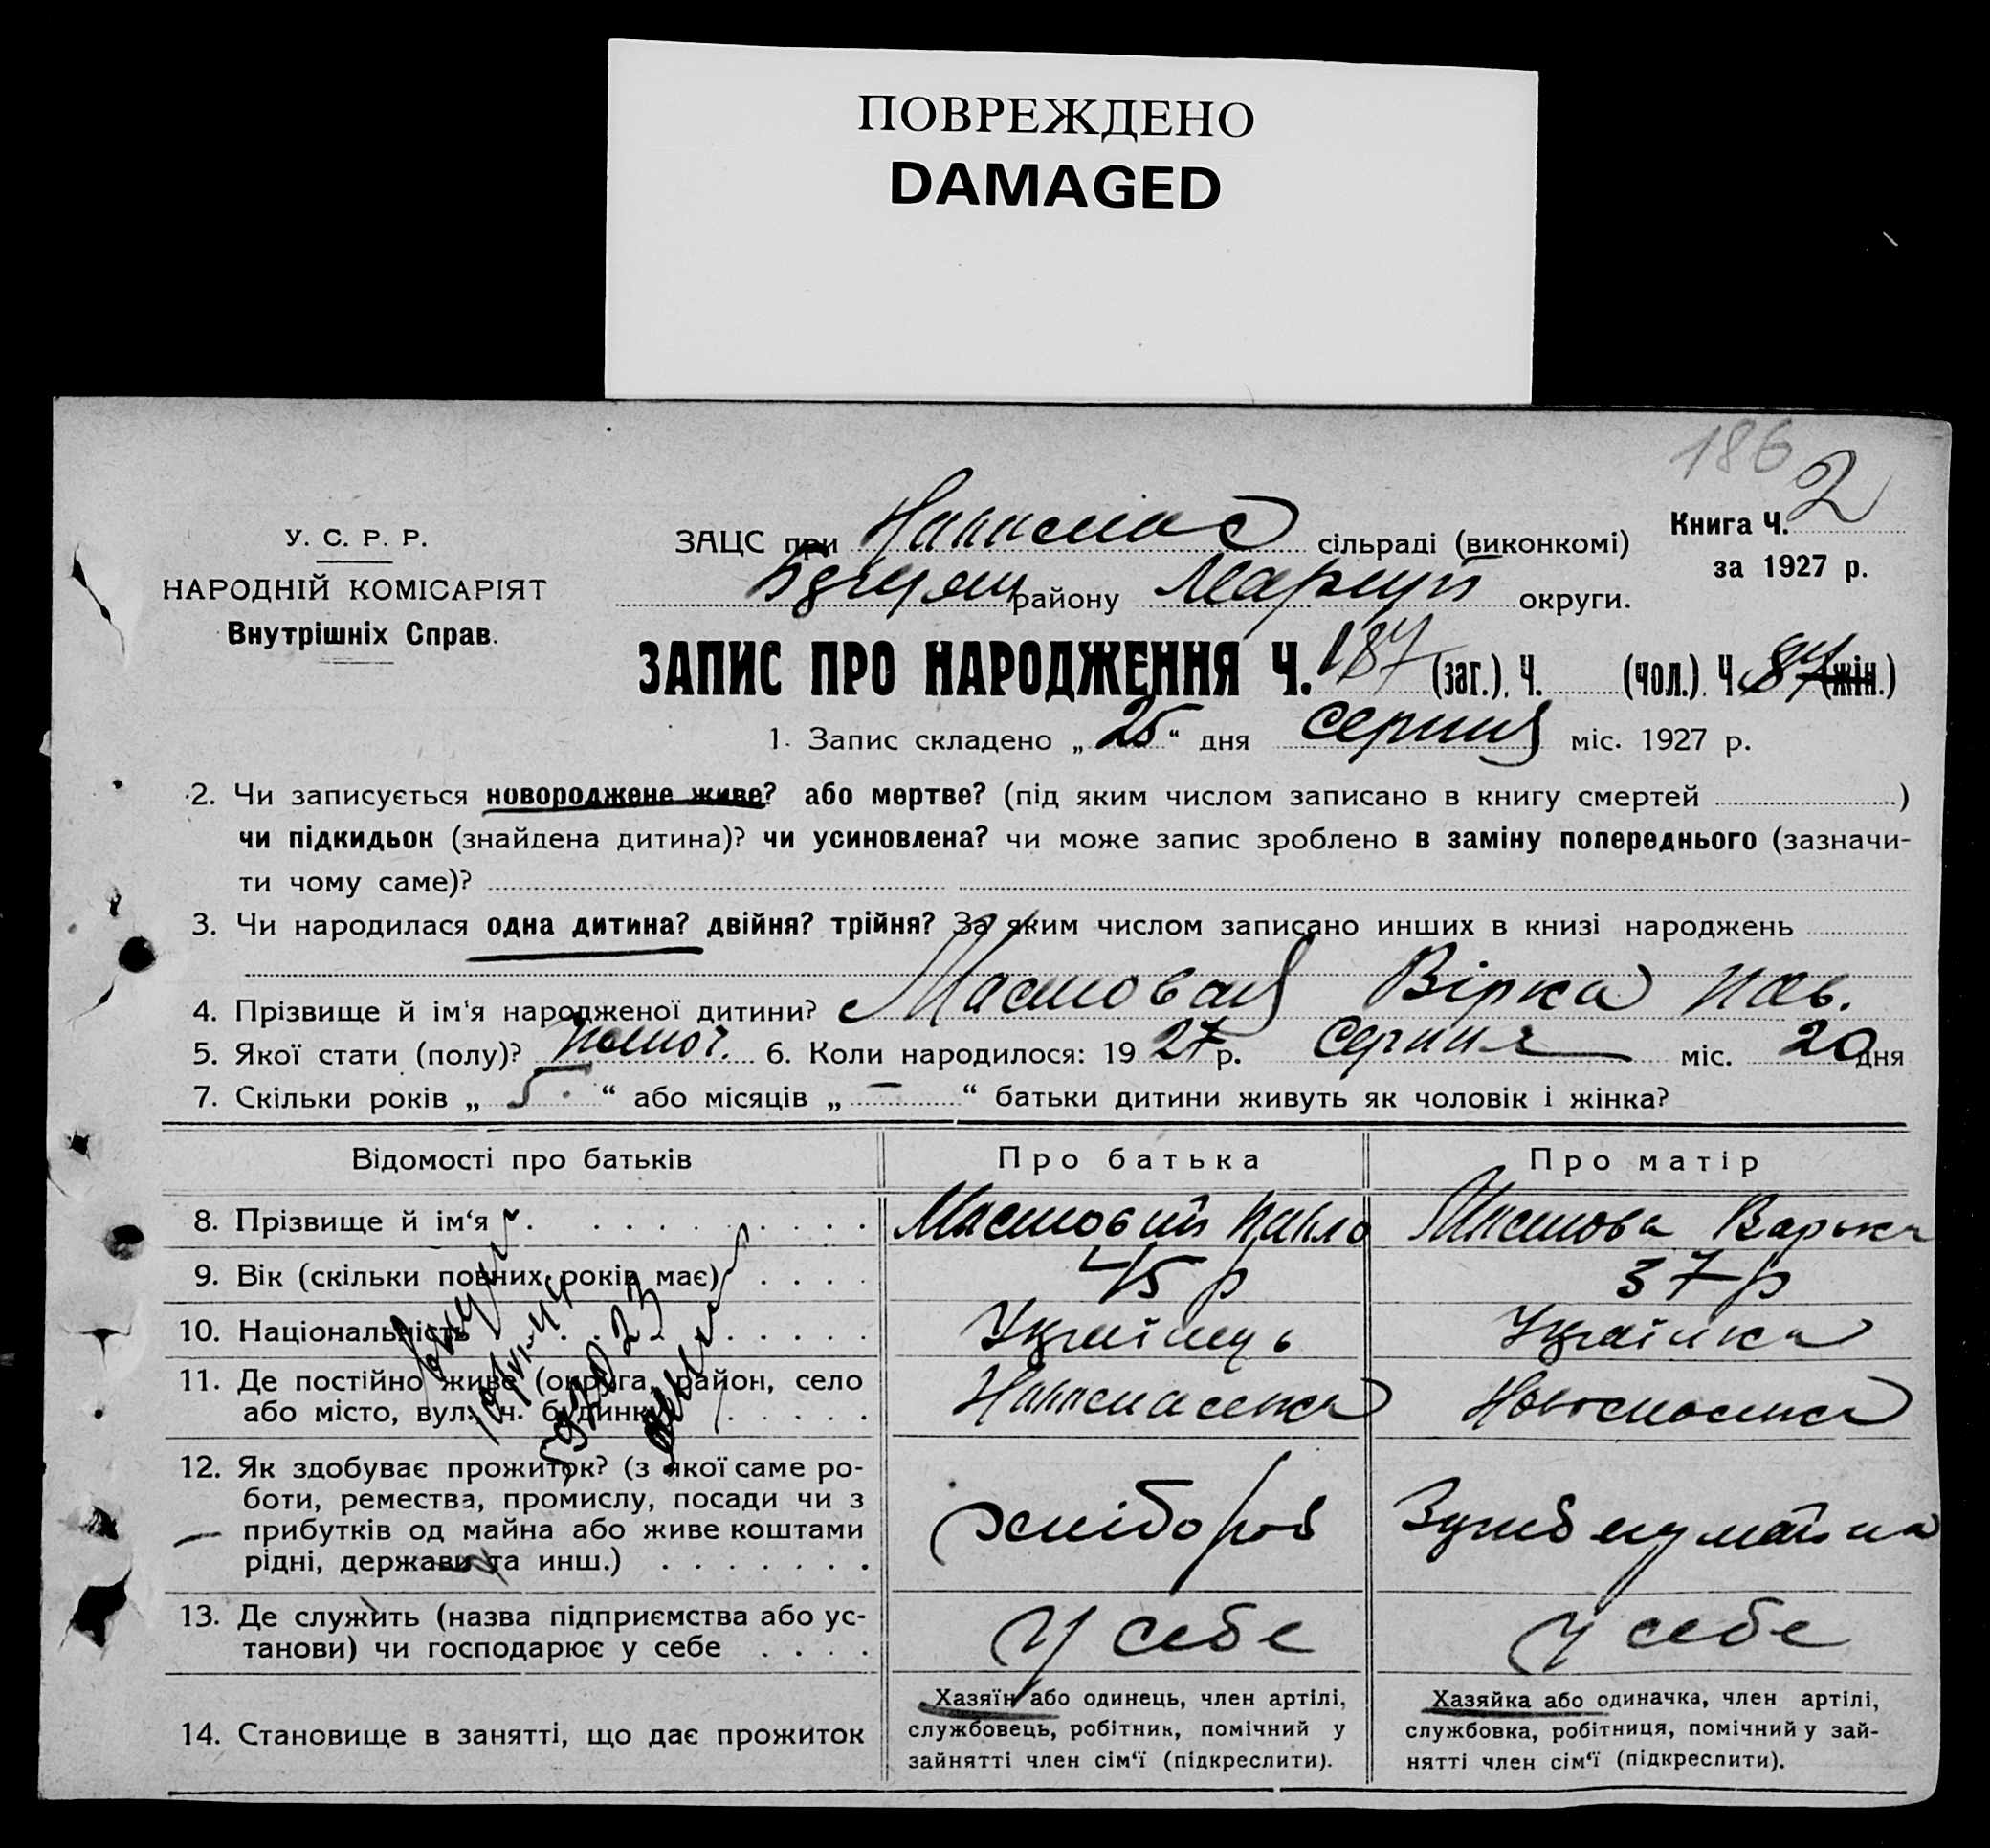 ПОВРЕЖДЕНО
DAMAGED
186
2
У. С. Р. Р.
НАРОДНІЙ КОМІСАРІЯТ
Внутрішніх Справ.
ЗАЦС при Новоспас сільраді (виконкомі)
Книга Ч. 2
за 1927 р.
району Маріуп округи.
ЗАПИС ПРО НАРОДЖЕННЯ Ч. 187 (заг.), Ч. (чол.). Ч. 87 (жін.)
1. Запис складено „ 25 “ дня серпня міс. 1927 р.
2. Чи записується новороджене живе? або мертве? (під яким числом записано в книгу смертей )
чи підкидьок (знайдена дитина)? чи усиновлена? чи може запис зроблено в заміну попереднього (зазначи-
ти чому саме)?
3. Чи народилася одна дитина? двійня? трійня? За яким числом записано инших в книзі народжень
4. Прізвище й ім'я народженої дитини? Мастовая Вірка Пав.
5. Якої стати (полу)? жіноч. 6. Коли народилося: 19 27 р. Серпня міс. 20 дня
7. Скільки років „ 5 “ або місяців „ — “ батьки дитини живуть як чоловік і жінка?
Відомості про батьків Про батька Про матір
8. Прізвище й ім'я Мастовий Павло Мастова Варька
9. Вік (скільки повних років має) 45 р 37 р
10. Національність Українець Українка
11. Де постійно живе (округа, район, село
або місто, вул., ч. будинку) Новоспасівка Новоспасівка
12. Як здобуває прожиток? (з якої саме ро-
боти, ремества, промислу, посади чи з
прибутків од майна або живе коштами
рідні, держави та инш.) хлібороб
13. Де служить (назва підприємства або ус-
танови) чи господарює у себе у себе у себе
14. Становище в занятті, що дає прожиток
Хазяїн або одинець, член артілі,
службовець, робітник, помічний у
зайнятті член сім'ї (підкреслити).
Хазяйка або одиначка, член артілі,
службовка, робітниця, помічний у зай-
нятті член сім'ї (підкреслити).